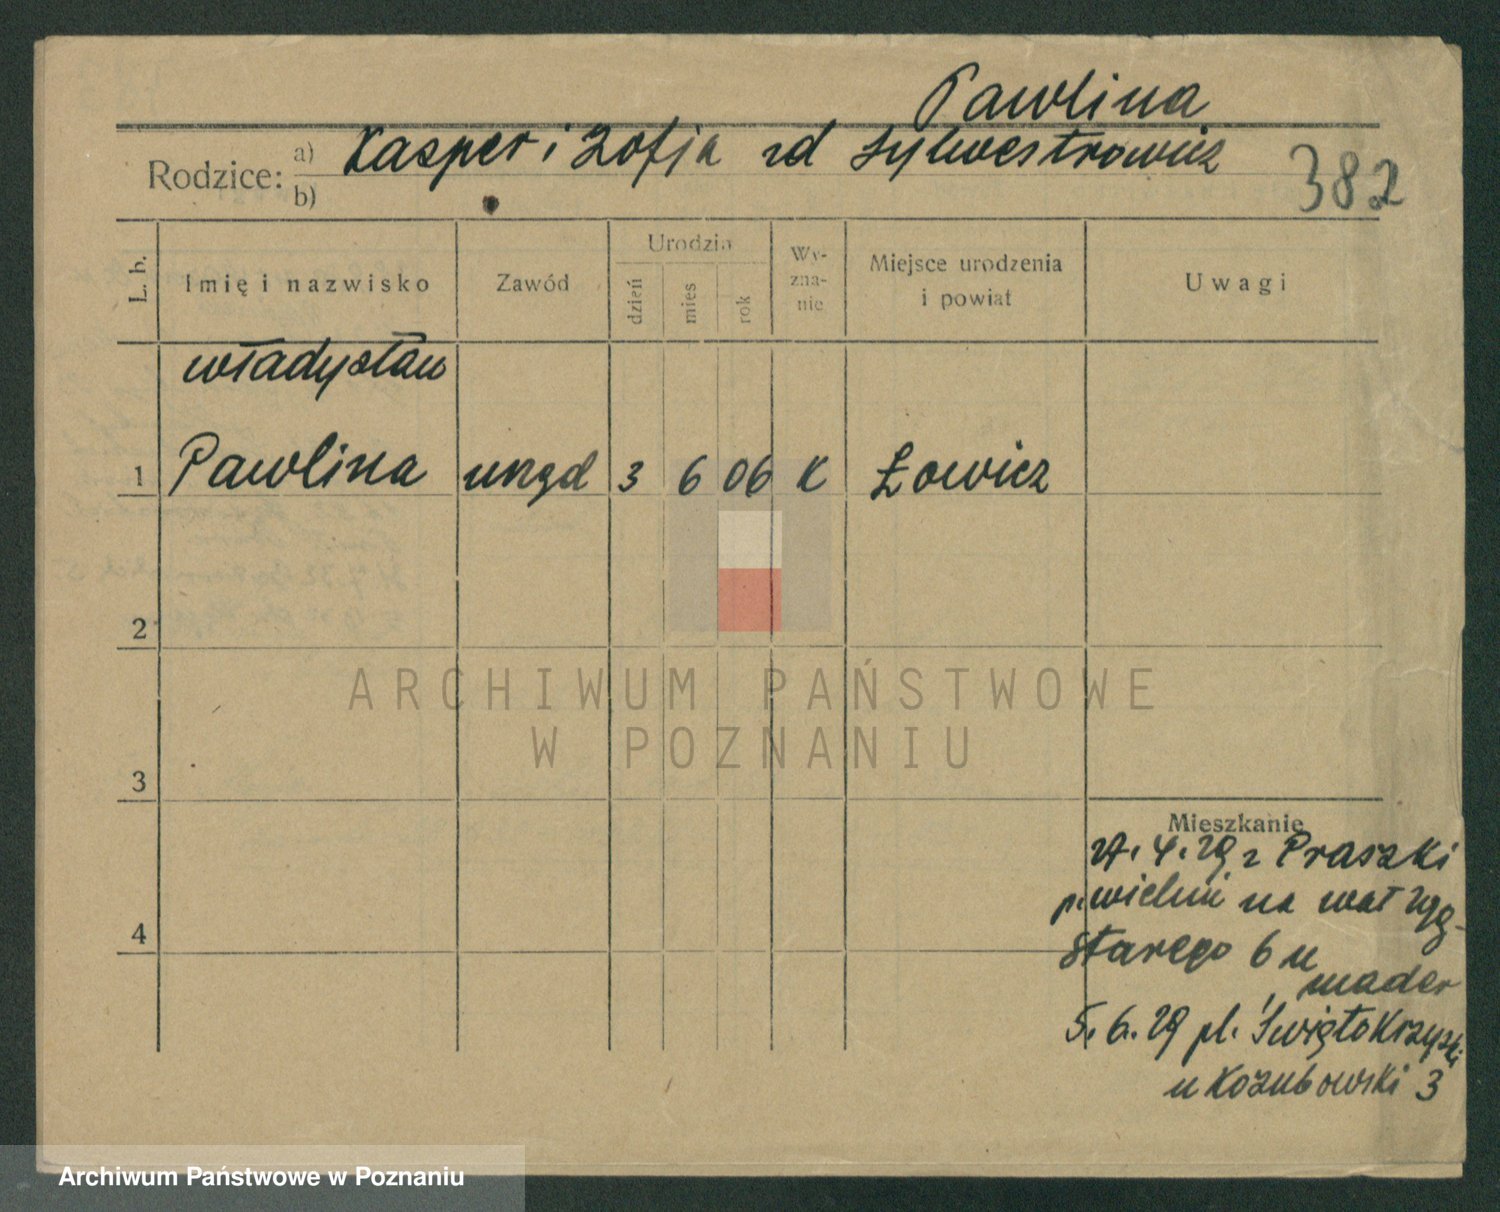 Pawlina
Rodzice: a) Kasper i Zofja zd Sylwestrowicz
b)
382
L. b.
Imię i nazwisko
Zawód
Urodzin
dzień
mies
rok
Wy-
zna-
nie
Miejsce urodzenia
i powiat
Uwagi
Władysław
1 Pawlina urzęd 3 6 06 K Łowicz
2
ARCHIWUM PAŃSTWOWE
W POZNANIU
3
Mieszkanie
4. 29 z Praszki
p. wieluń na wał zyg
4
Starego 6 u
mader
5. 6. 29 pl. Świętokrzyski
u Kozubowski 3
Archiwum Państwowe w Poznaniu